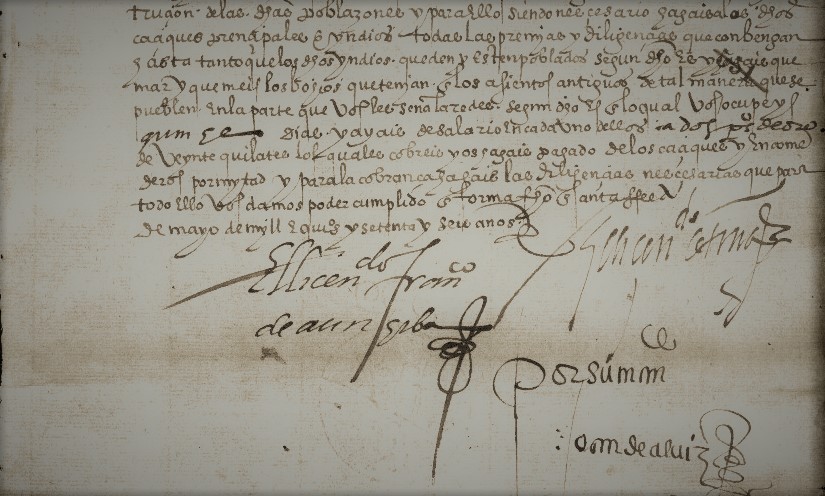 trucion de las dhas poblazones y para ello siendo nescesario hagais a los dhos
caciques prençipales e yndios todas las premias y diligençias que conbengan
hasta tanto q los dhos yndios queden y esten poblados segun dho es y hagais que
mar y quemeis los bohios que tenian en los asientos antiguos de tal manera que se
pueblen en la parte que vos les señalaredes segun dho es en lo qual vos ocupeys
quinze dias y ayais de salario en cada vno dellos a dos pos de oro
de veynte quilates los quales cobreis y os hagais pagado de los caciques y encome
deros por mytad y para la cobrança hagais las diligençias nescesarias que para
todo ello vos damos poder cumplido en forma fho en santa ffee a
de mayo de mill e quis y setenta y seis anos
El licendo franco
de aunçibai
El licendo
Por su mdo
de alui